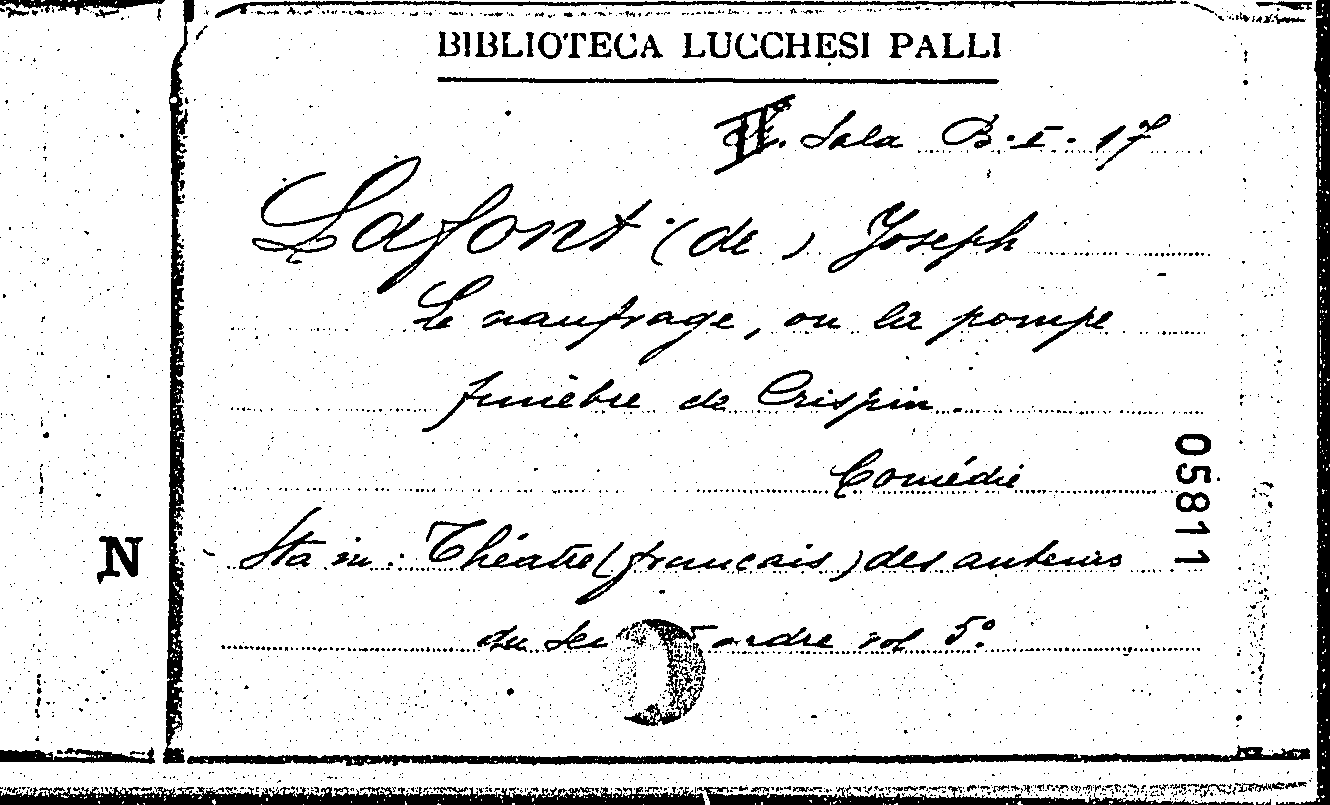 BIBLIOTECA LUCCHESI PALLI
II. Sala B.I.17
Lafont (de) Joseph
Le naufrage, ou la pompe
funèbre de Crispin.
Comédie
05811
N
Sta in: Théatre (francais) des auteurs
du ordre vol 5º